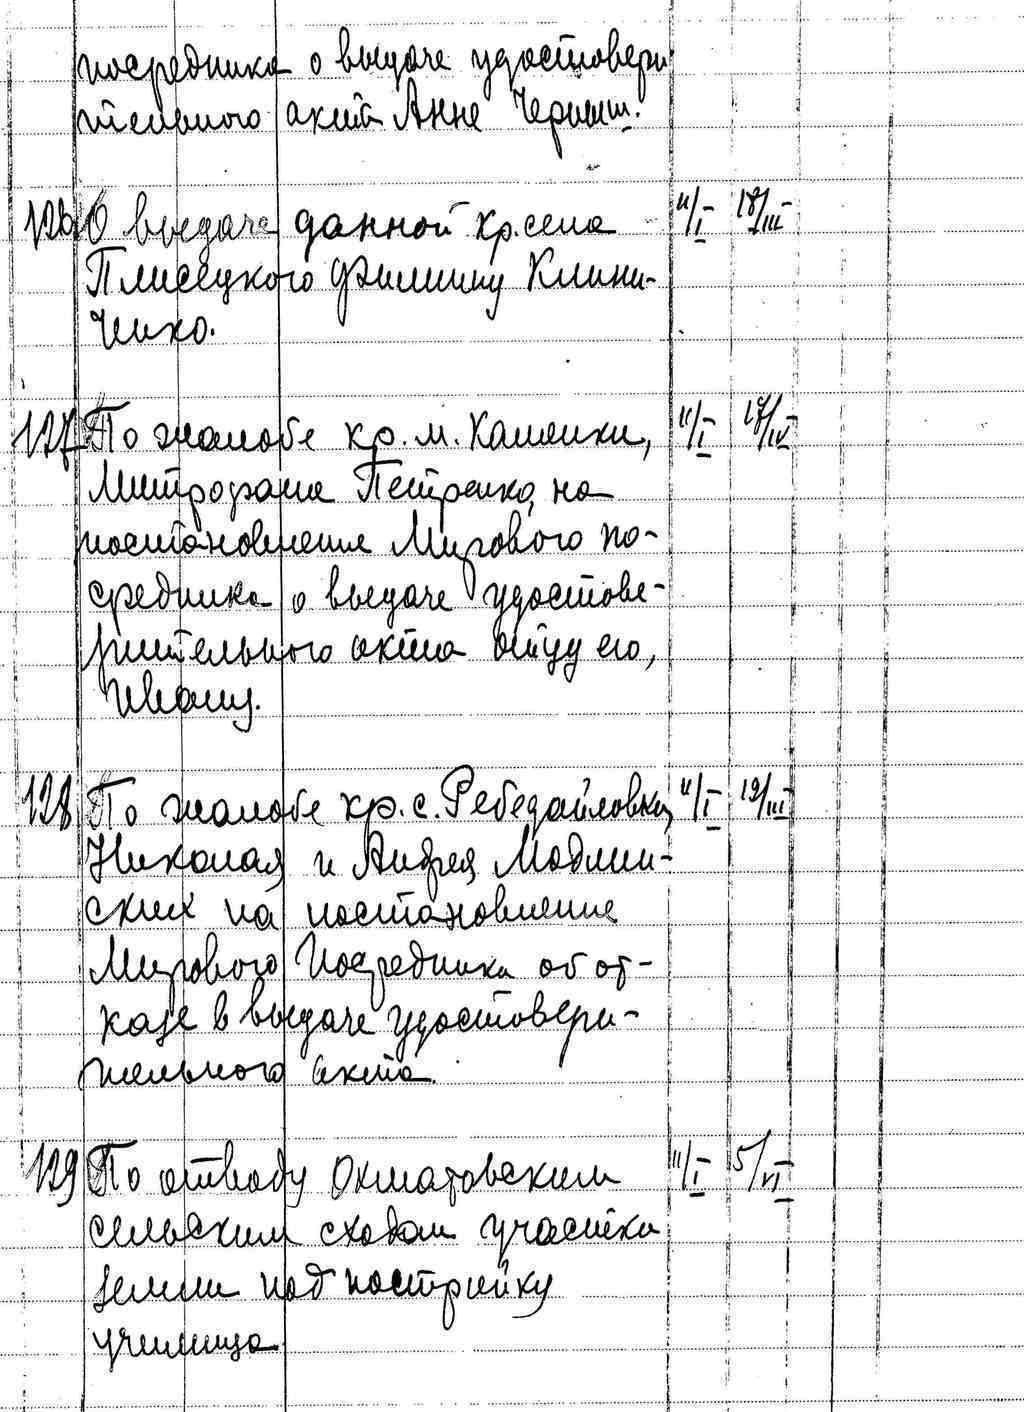 посредника о выдаче удостовери
тельного акта Анне Черныш.
126 О выдаче данной кр. села 11/I 18/III
Плисецкого Филиппу Клини-
чико.
127 По жалобе кр. м. Каменки, 11/I 17/IV
Митрофана Петренко, на
постановление Мирового по-
средника о выдаче удостове-
рительного акта отцу его,
Ивану.
128 По жалобе кр. с. Ребедайловки, 11/I 19/III
Николая и Андрея Модлин-
ских на постановление
Мирового Посредника об от-
казе в выдаче удостовери-
тельного акта.
129 По отводу Охматовским 11/I 5/VI
сельским сходом участка
земли под постройку
училища